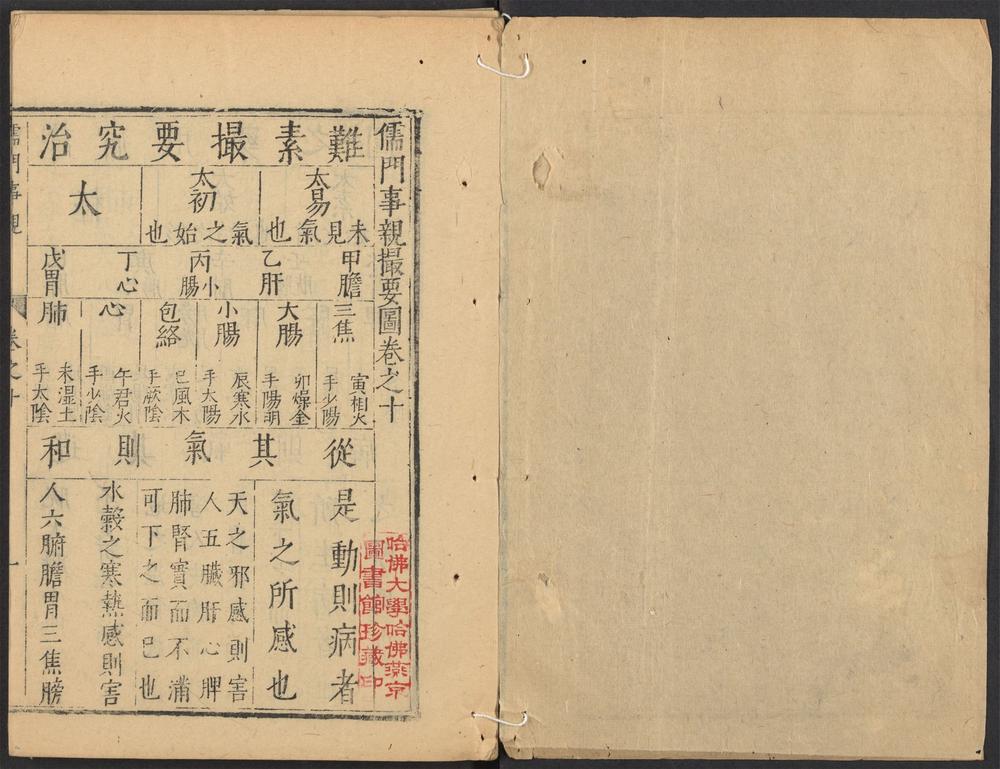 儒門事親撮要圖卷之十
難素撮要究治
太易
未見氣也
太初
氣之始也
太
甲膽
乙肝
丙小腸
丁心
戊胃
三焦
寅相火
手少陽
大腸
卯燥金
手陽明
小腸
辰寒水
手太陽
包絡
巳風木
手厥陰
心
午君火
手少陰
肺
未湿土
手太陰
從其氣則和
是動則病者
氣之所感也
天之邪感則害
人五臟肝心脾
肺腎實而不滿
可下之而已也
水穀之寒熱感則害
人六腑膽胃三焦膀
儒門事親
卷之十
一
哈佛大學哈佛燕京
圖書館珍藏印